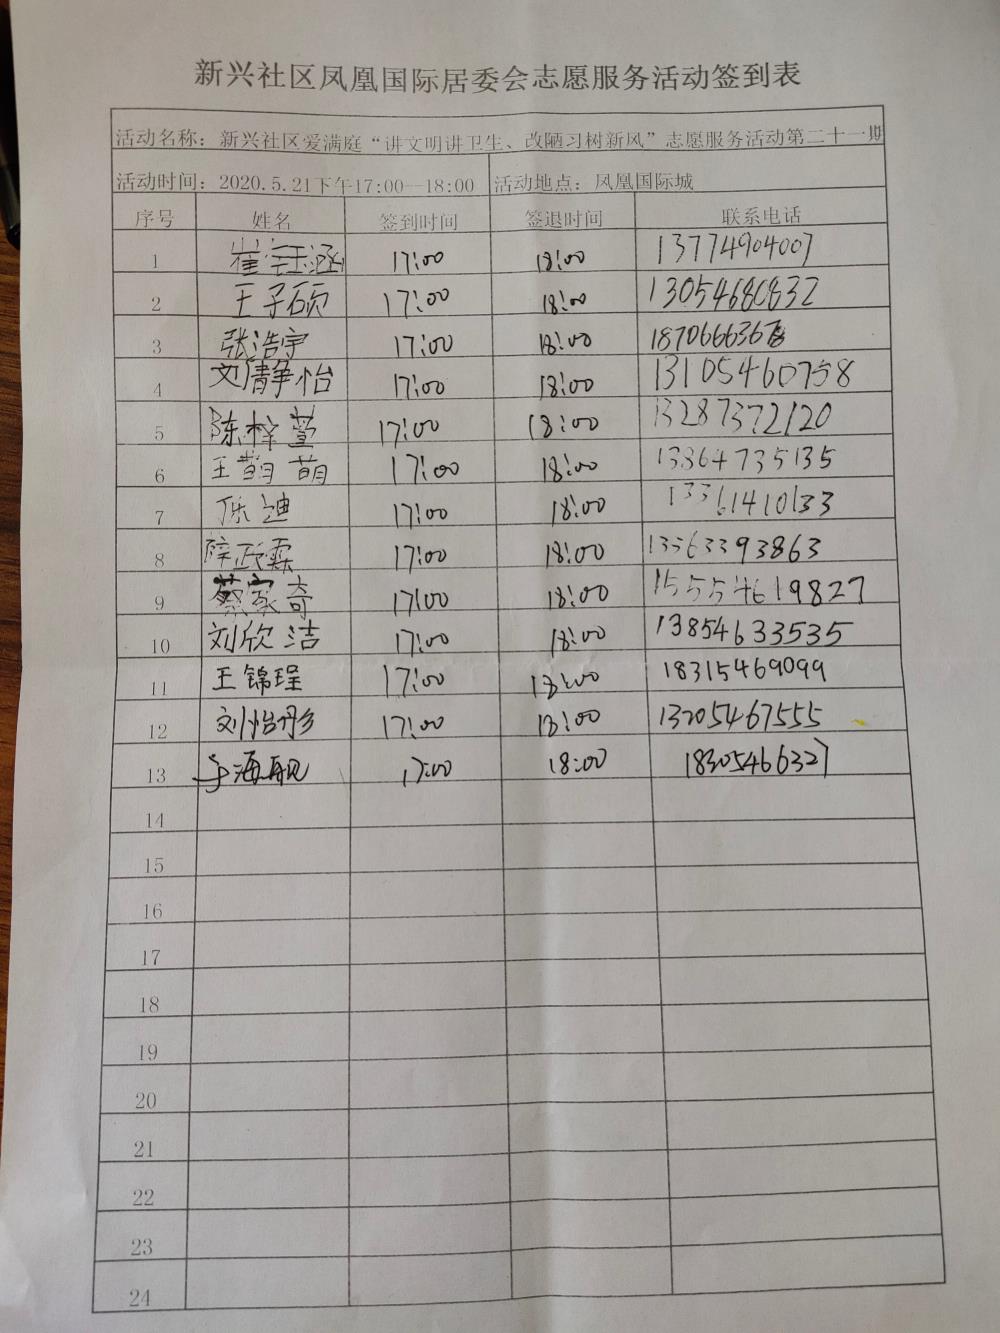 新兴社区凤凰国际居委会志愿服务活动签到表
活动名称：新兴社区爱满庭“讲文明讲卫生、改陋习树新风”志愿服务活动第二十一期
活动时间：2020.5.21下午17:00--18:00 活动地点：凤凰国际城
序号 姓名 签到时间 签退时间 联系电话
1 崔钰涵 17:00 18:00 13774904007
2 王子硕 17:00 18:00 13054680832
3 张浩宇 17:00 18:00
4 刘倩静怡 17:00 18:00 13105460758
5 陈梓萱 17:00 18:00 13287372120
6 王 萌 17:00 18:00 13864735135
7 乐迪 17:00 18:00 13361410133
8 薛政霖 17:00 18:00 13563393863
9 蔡家奇 17:00 18:00 15554619827
10 刘欣洁 17:00 18:00 13854633535
11 王锦珵 17:00 18:00 18315469099
12 刘怡彤 17:00 18:00 13205467555
13 海舰 17:00 18:00 18305466327
14
15
16
17
18
19
20
21
22
23
24